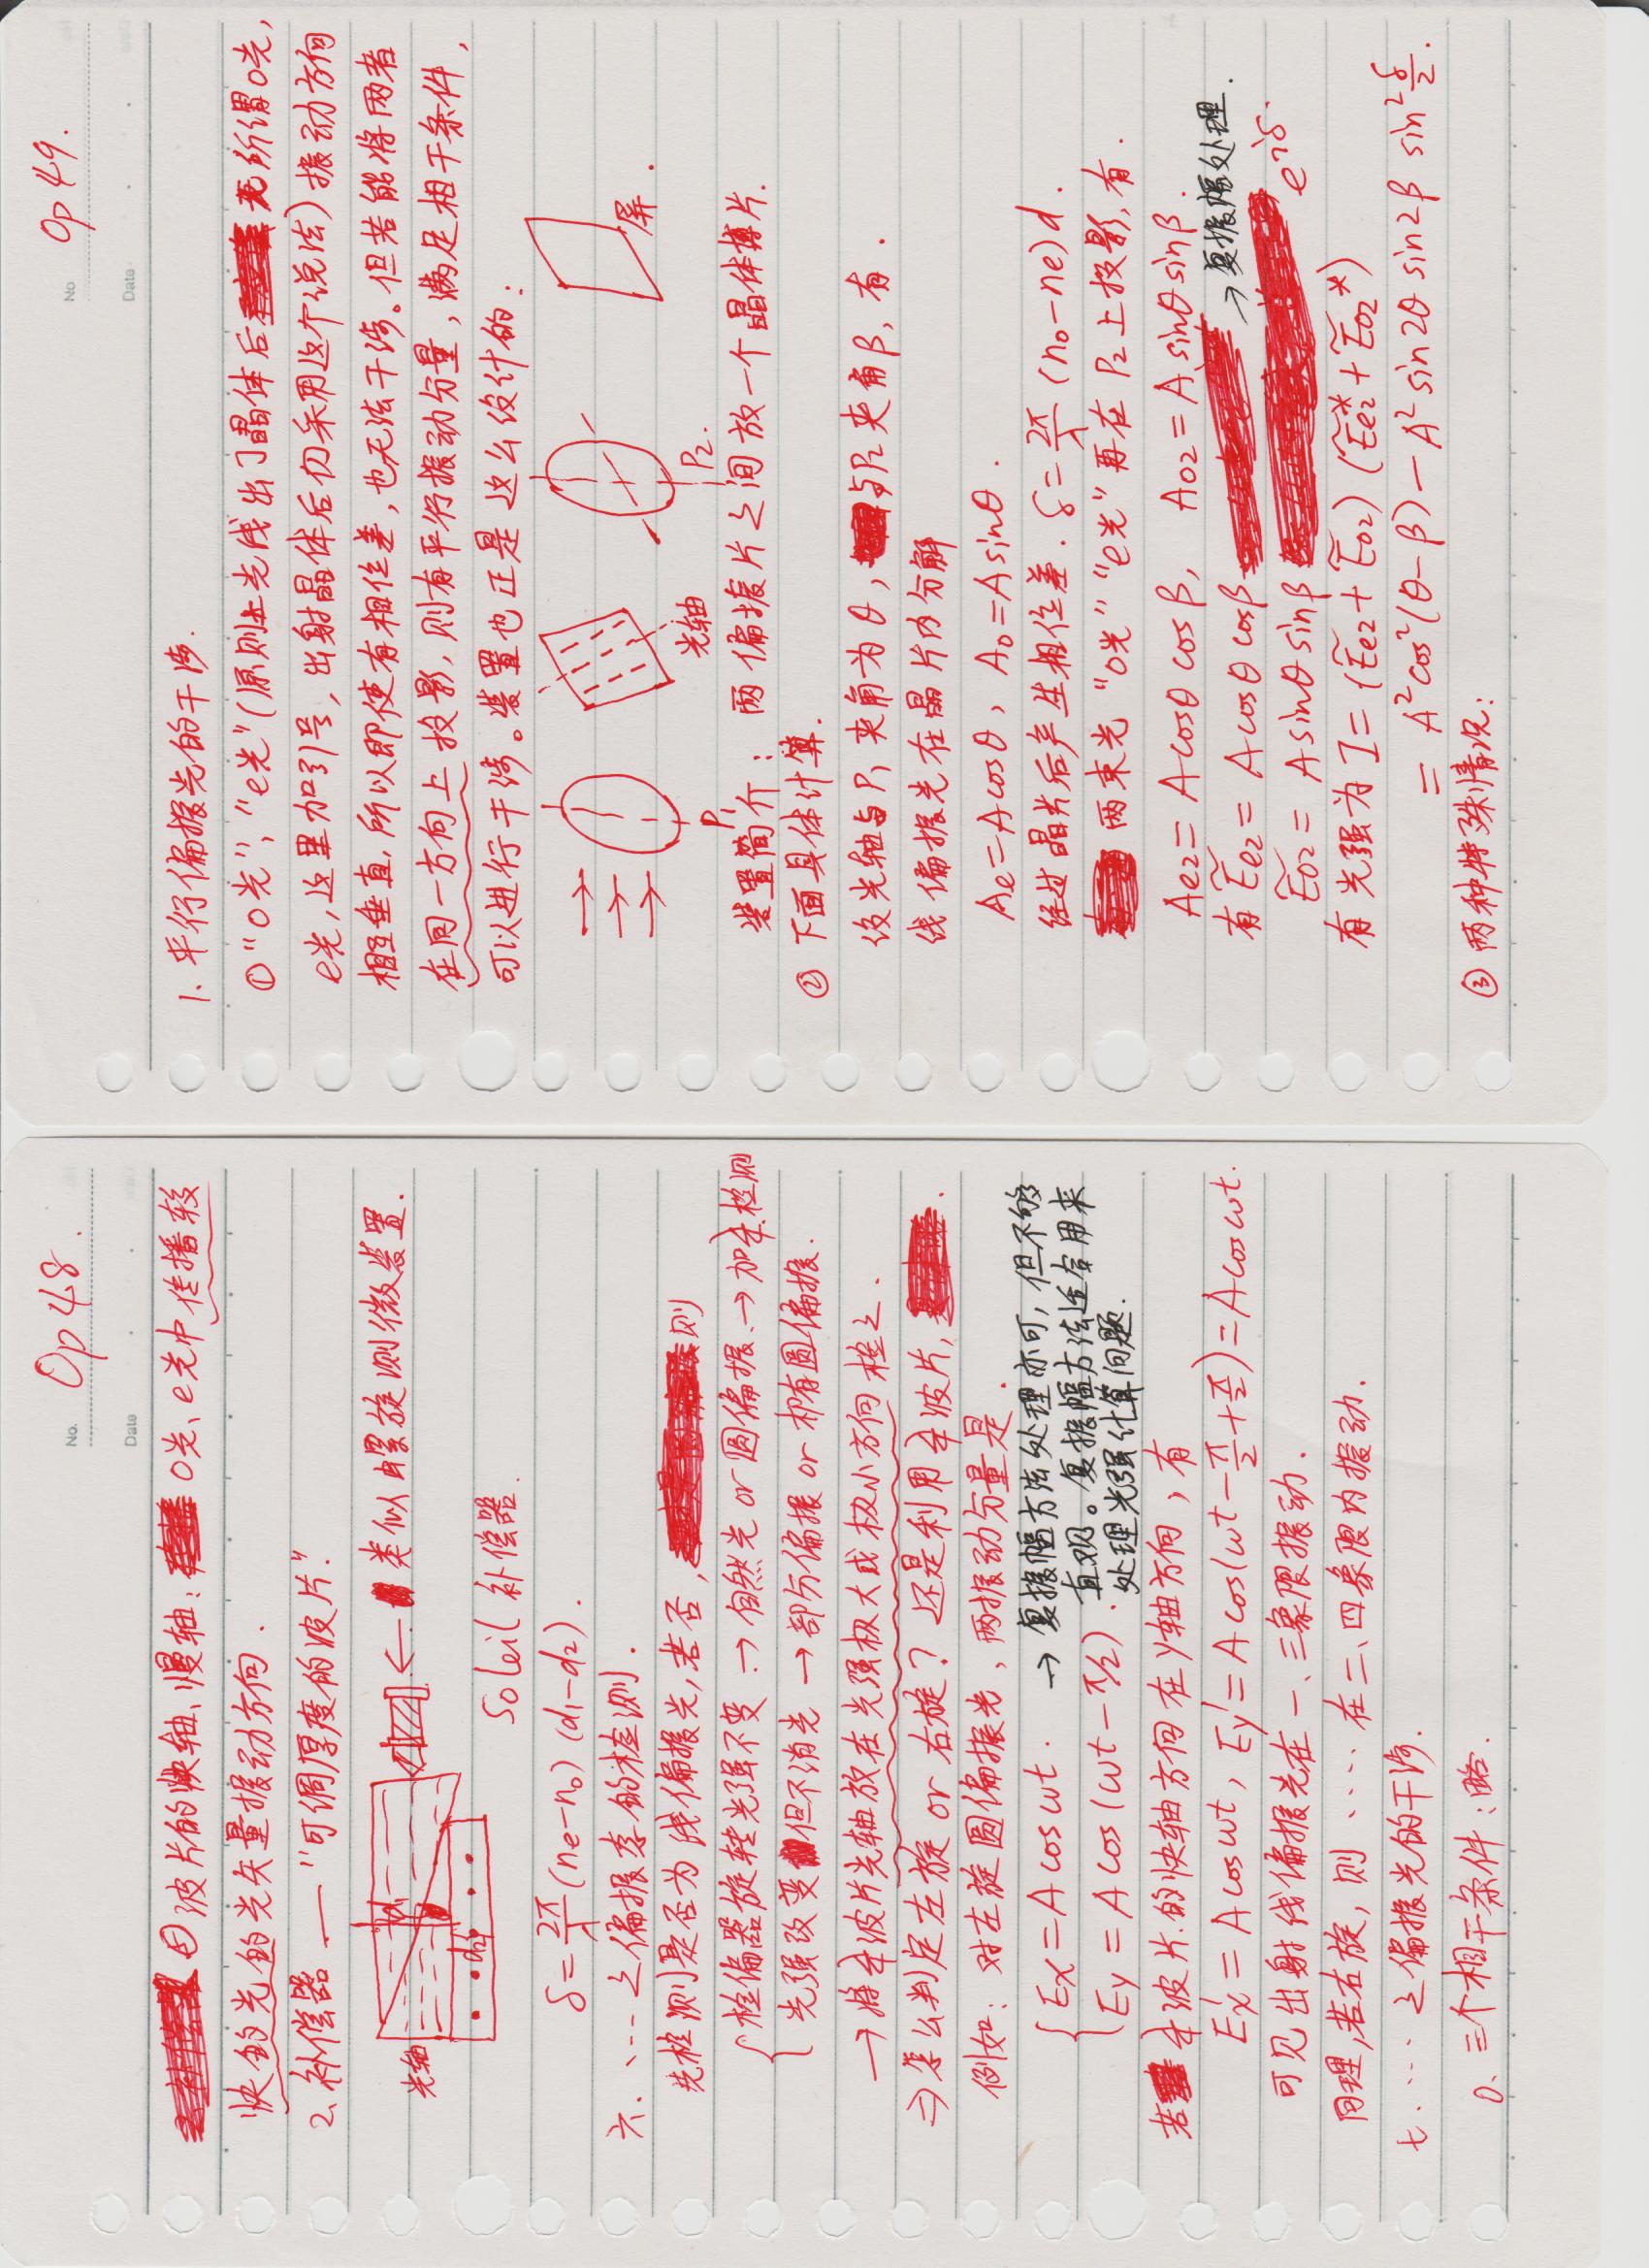 No. Op 48.
Date
④波片的快轴、慢轴: o光、e光中传播较
快的光的光矢量振动方向.
2、补偿器 — "可调厚度的波片."
d1
光轴
← 类似螺旋测微装置.
d2
Soleil 补偿器.
δ=2π/λ (ne-no) (d1-d2).
六、…之偏振态的检测.
先检测是否为线偏振光,若否, 则
检偏器旋转光强不变 → 自然光 or 圆偏振 → 加λ/4检测
光强改变但不消光 → 部分偏振 or 椭圆偏振.
→ 将λ/4波片光轴放在光强极大或极小方向检之.
⇒ 怎么判定左旋 or 右旋? 还是利用λ/4波片,
例如: 对左旋圆偏振光, 两振动分量是.
Ex = A cos ωt.
Ey = A cos (ωt - π/2).
→ 复振幅方法处理亦可, 但不够
直观。复振幅方法适合用来
处理光强计算问题.
若λ/4波片的快轴方向在y轴方向, 有
Ex' = A cos ωt, Ey' = A cos(ωt - π/2 + π/2) = A cos ωt.
可见出射线偏振光在一、三象限振动.
同理,若右旋, 则 …. 在二、四象限内振动.
七、…之偏振光的干涉.
0、三个相干条件: 略.
No Op 49.
Date
1. 平行偏振光的干涉.
① "o光", "e光" (原则上光线出了晶体后无所谓o光,
e光, 这里加引号, 出射晶体后仍采用这个说法) 振动方向
相互垂直, 所以即使有相位差, 也无法干涉。但若能将两者
在同一方向上投影, 则有平行振动分量, 满足相干条件,
可以进行干涉。装置也正是这么设计的:
屏.
光轴
P1
P2.
装置简介: 两偏振片之间放一个晶体薄片.
② 下面具体计算.
设光轴与P1夹角为θ, 与P2夹角β, 有.
线偏振光在晶片内分解
Ae = A cosθ, Ao = A sinθ.
经过晶片后产生相位差. δ = 2π/λ (no-ne)d.
两束光 "o光" "e光" 再在P2上投影, 有.
Ae2 = A cosθ cosβ, Ao2 = A sinθ sinβ.
有 Ẽe2 = A cosθ cosβ → 复振幅处理.
Ẽo2 = A sinθ sinβ e^{iδ}.
有光强为 I = (Ẽe2 + Ẽo2) (Ẽe2* + Ẽo2*)
= A² cos²(θ-β) - A² sin2θ sin2β sin² δ/2.
③ 两种特殊情况: